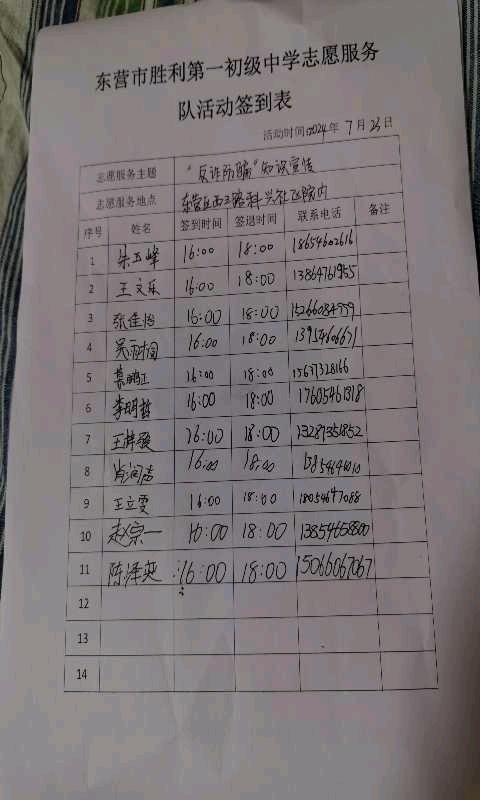 东营市胜利第一初级中学志愿服务
队活动签到表
活动时间:2024年 7月 23日
志愿服务主题 "反诈防骗"知识宣传
志愿服务地点 东营区西三路科兴社区院内
序号 姓名 签到时间 签退时间 联系电话 备注
1 朱玉峰 16:00 18:00 18654602616
2 王文乐 16:00 18:00 13864761955
3 张佳怡 16:00 18:00 15266084999
4 16:00 18:00
5 16:00 18:00
6 李明哲 16:00 18:00 17605461318
7 16:00 18:00 13287351852
8 肖润声 16:00 18:00
9 王立雯 16:00 18:00 18054647088
10 赵宗一 16:00 18:00 13854658800
11 陈泽奕 16:00 18:00 15066067067
12
13
14